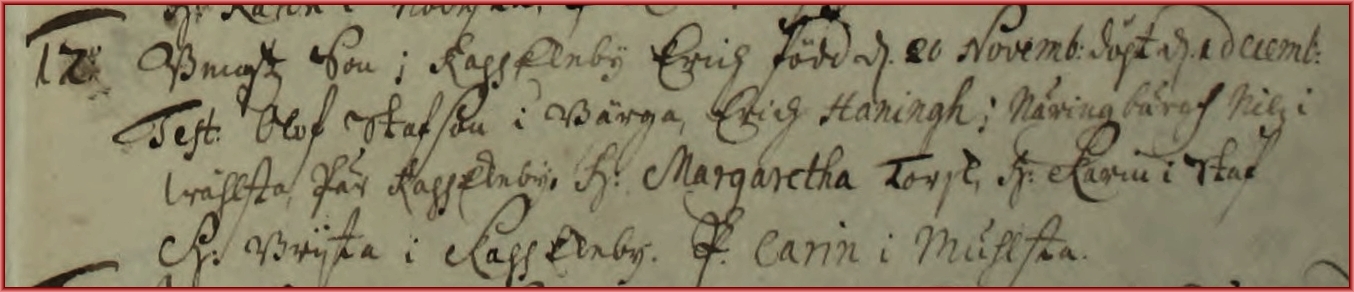 12. Bengtz Son i Kassleby Erich född d. 20 Novemb: döpt d. 1 decemb:
Test: Olof Stafson i Bärga, Erich Haningh i Näringbärgh Nilz i
Wåhlsta, Pär Kassleby, H: Margaretha Torsl, H: Karin i Staf
H: Brijta i Kassleby. P. Carin i Muhlsta.